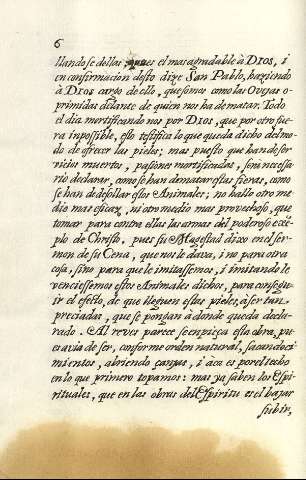 6
llandose dellas, pues el mas agradable à DIOS, i
en confirmacion desto dize San Pablo, haziendo
à DIOS cargo de ello, que somos como las Ovejas o-
primidas delante de quien nos ha de matar. Todo
el dia mortificando nos por DIOS, que por otro fue-
ra inpossible, esto testifica lo que queda dicho del mo-
do de ofrecer las pieles; mas puesto que han de ser
vicios muertos, pasiones mortificadas, serà necessa-
rio declarar, como se han de matar estas fieras, como
se han de desollar estos Animales; no hallo otro me
dio mas eficaz, ni otro medio mas provechoso, que
tomar para contra ellas las armas del poderoso exẽ-
plo de Christo, pues su Magestad dixo en el ser-
mon de su Cena, que nos le dava, i no para otra
cosa, sino para que le imitassemos, i imitando le
venciessemos estos Animales dichos, para consegu-
ir el efecto, de que lleguen estas pieles à ser tan
preciadas, que se pongan à donde queda decla-
rado. Al reves parece se enpieça esta obra, pu-
es avia de ser, conforme orden natural, sacando ci-
mientos, abriendo çanjas, i àca es por el techo
en lo que primero topamos: mas ya saben los Espi-
rituales, que en las obras del Espiritu es el bajar
subir,